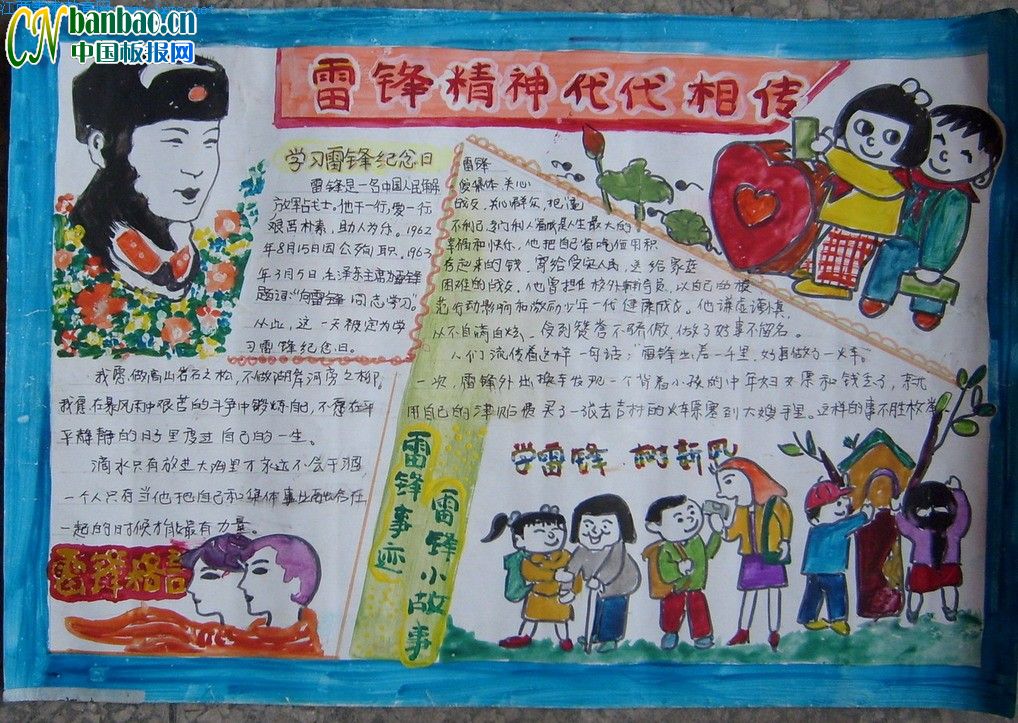 CN banbao.cn
中国板报网
雷锋精神代代相传
学习雷锋纪念日
雷锋是一名中国人民解
放军战士，他干一行，爱一行
艰苦朴素，助人为乐。1962
年8月15日因公殉职。1963
年3月5日，毛泽东主席为雷锋
题词：“向雷锋同志学习”。
从此，这一天被定为学
习雷锋纪念日。
雷锋
爱集体 关心
战友，
幸福和快乐，他把自己省吃俭用积
存起来的钱，寄给受灾人民，送给家庭
困难的战友，他曾担任校外辅导员，以自己的模
范行动影响和激励少年一代健康成长。他谦虚谨慎，
从不自满自炫、受到赞誉不骄傲 做了好事不留名。
人们流传着这样一句话：“雷锋出差一千里，好事做了一火车。”
一次，雷锋外出换车发现一个背着小孩的中年妇女票和钱丢了，就
用自己的津贴费买了一张去吉林的火车票塞到大嫂手里。这样的事不胜枚举。
我愿做高山岩石之松，不做湖岸河旁之柳。
我愿在暴风雨中艰苦的斗争中锻炼自己，不愿在平
平静静的日子里度过自己的一生。
滴水只有放进大海里才永远不会干涸
一个人只有当他把自己和集体事业融合在
一起的时候才能最有力量。
雷锋格言
雷锋事迹
雷锋小故事
学雷锋 树新风